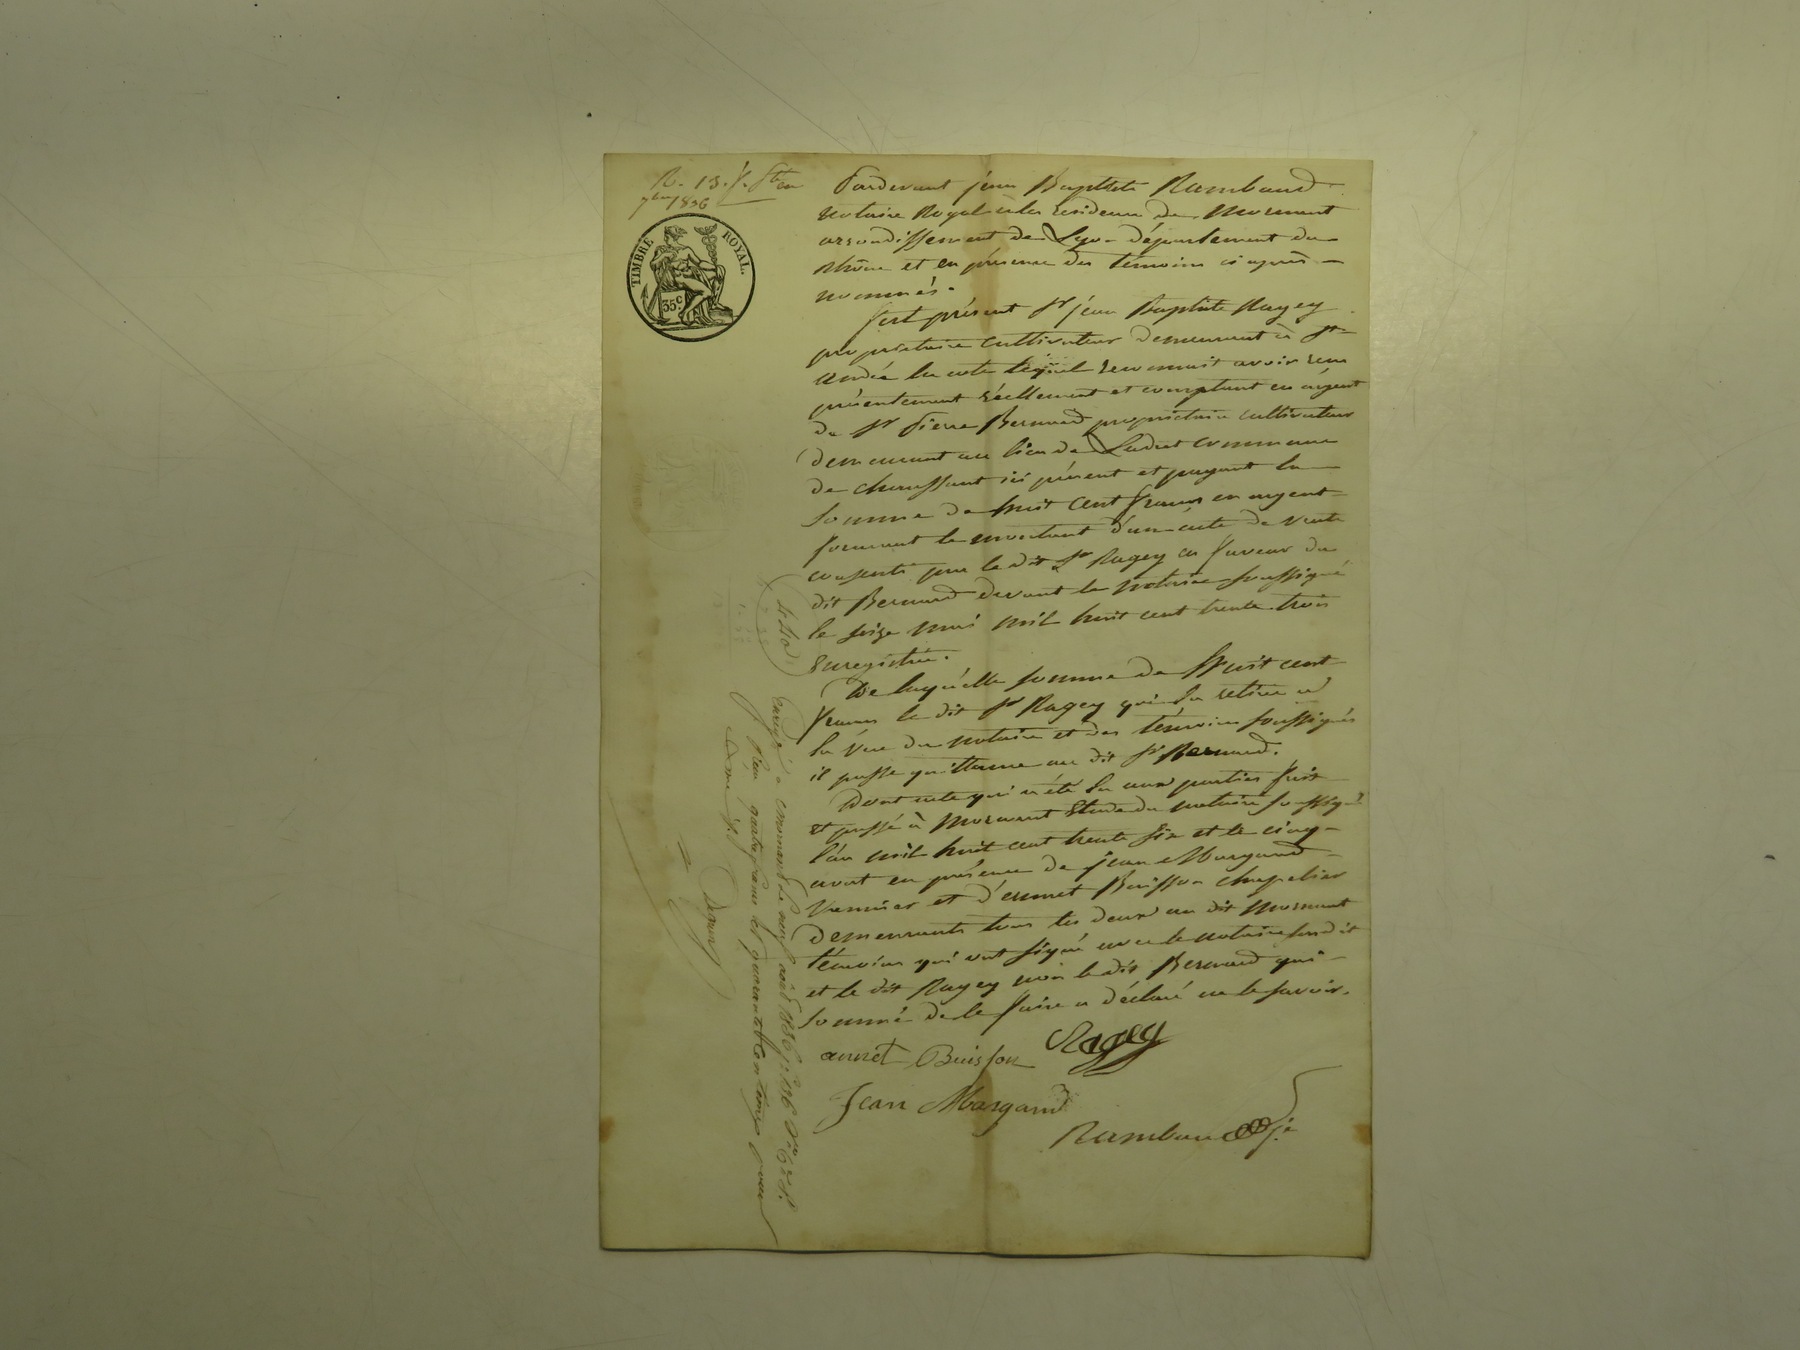 R. 13. f.
7bre 1836
TIMBRE ROYAL.
35c
Pardevant jean Baptiste Rambaud
notaire Royal à la residence de Mornant
arrondissement de Lyon département du
rhône et en présence des témoins ci après
nommés.
fut présent Sr jean Baptiste Ragey
propriétaire cultivateur demeurant à St
andré la cote lequel reconnait avoir reçu
présentement réellement et comptant en argent
de Sr Pierre Bernard propriétaire cultivateur
demeurant au lieu de Ladret commune
de chaussant ici présent et payant la
somme de huit cent francs en argent
formant le montant d'un acte de vente
consenti par le dit Sr Ragey en faveur du
dit Bernard devant le notaire soussigné
le seize mai mil huit cent trente trois
Enregistré.
De laquelle somme de huit cent
francs le dit Sr Ragey qui l'a retiré a
la vue du notaire et des témoins soussignés
il passe quittance au dit Sr Bernard.
Dont acte qui a été lu aux parties fait
et passé à Mornant Etude du notaire soussigné
l'an mil huit cent trente six et le cinq
aout en présence de jean Margand
et d'ennet Buisson chapelier
demeurants tous les deux au dit Mornant
témoins qui ont signé avec le notaire susdit
et le dit Ragey non le dit Bernard qui
sommé de le faire a déclaré ne le savoir.
annet Buisson Ragey
Jean Margand
Rambaud
4.40
Enrgé a mornant le neuf août 1836 fo 136
quatre francs et quarante centimes pour